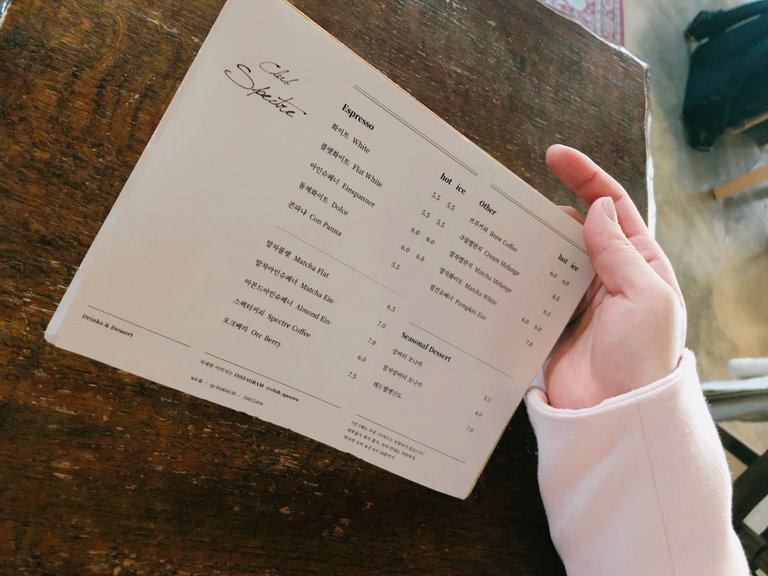 Club
Spectre
Espresso
hot ice
화이트 White 5.5 5.5
플랫화이트 Flat White 5.5 5.5
아인슈페너 Einspanner 6.0 6.0
돌체화이트 Dolce 6.0 6.0
콘파냐 Con Panna 5.5
말차플랫 Matcha Flat 6.5
말차아인슈페너 Matcha Ein- 7.0
아몬드아인슈페너 Almond Ein- 7.0
스펙터커피 Spectre Coffee 6.0
오크베리 Orc Berry 7.5
Other
hot ice
브루커피 Brew Coffee 6.0 6.0
크림멜란지 Cream Melange 6.5
말차멜란지 Matcha Melange 6.5
말차화이트 Matcha White 6.0 6.0
펌킨슈페너 Pumpkin Ein- 7.0
Seasonal Dessert
앙버터 모나카 3.5
말차앙버터 모나카 4.0
7.0
Drinks & Dessert
자세한 이야기는 INSTAGRAM @club.spectre
wi-fi